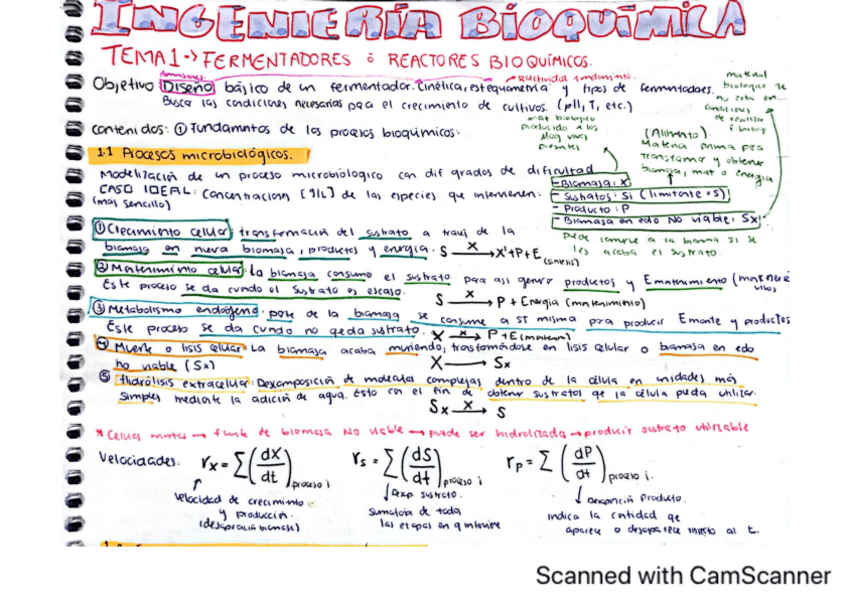 INGENIERÍA BIOQUÍMICA
TEMA 1 -> FERMENTADORES o REACTORES BIOQUÍMICOS.
Objetivo Diseño básico de un fermentador. Cinética, estequiometría y tipos de fermentadores.
Busca las condiciones necesarias para el crecimiento de cultivos. (pH, T, etc.)
contenidos: ① Fundamentos de los procesos bioquímicos.
material
biológico
(Alimento).
Materia prima pra
transformar y obtener
biomasa, mat o energía
1.1 Procesos microbiológicos.
Modelización de un proceso microbiológico con dif grados de dificultad
CASO IDEAL: Concentracions (g/L) de las especies que intervienen:
(mas sencillo)
- Biomasa: X
- Sustratos: Si (limitante = S)
- Producto: P
- Biomasa en edo No viable: Sx
① Crecimiento celular: transformación del sustrato a través de la
biomasa en nueva biomasa, productos y energía. S —X→ X'+P+E
② Mantenimiento celular: La biomasa consume el sustrato para así generar productos y Emantenimiento
Este proceso se da cundo el sustrato es escaso. S —X→ P + Energía (mantenimiento)
③ Metabolismo endógeno: parte de la biomasa se consume a sí misma pra producir Emante y productos
Este proceso se da cundo no qeda sustrato. X —X→ P+E
④ Muerte o lisis celular: La biomasa acaba muriendo, trasformándose en lisis celular o biomasa en edo
no viable (Sx) X → Sx
⑤ Hidrólisis extracelular: Descomposición de moleculas complejas, dentro de la célula en unidades más
simples mediante la adición de agua. Esto con el fin de obtener sustratos qe la célula pueda utilizar.
Sx —X→ S
* Celulas mertas → funk de biomasa No viable → puede ser hidrolizada → producir sustrato utilizable
Velocidades: rx = Σ(dX/dt) proceso i rs = Σ(dS/dt) proceso i rp = Σ(dP/dt) proceso i.
velocidad de crecimiento
y producción.
sustrato.
Sumatoria de toda
las etapas en q interviene
Producto.
indica la cntidad qe
aparece o desaparece respecto al t.
Scanned with CamScanner